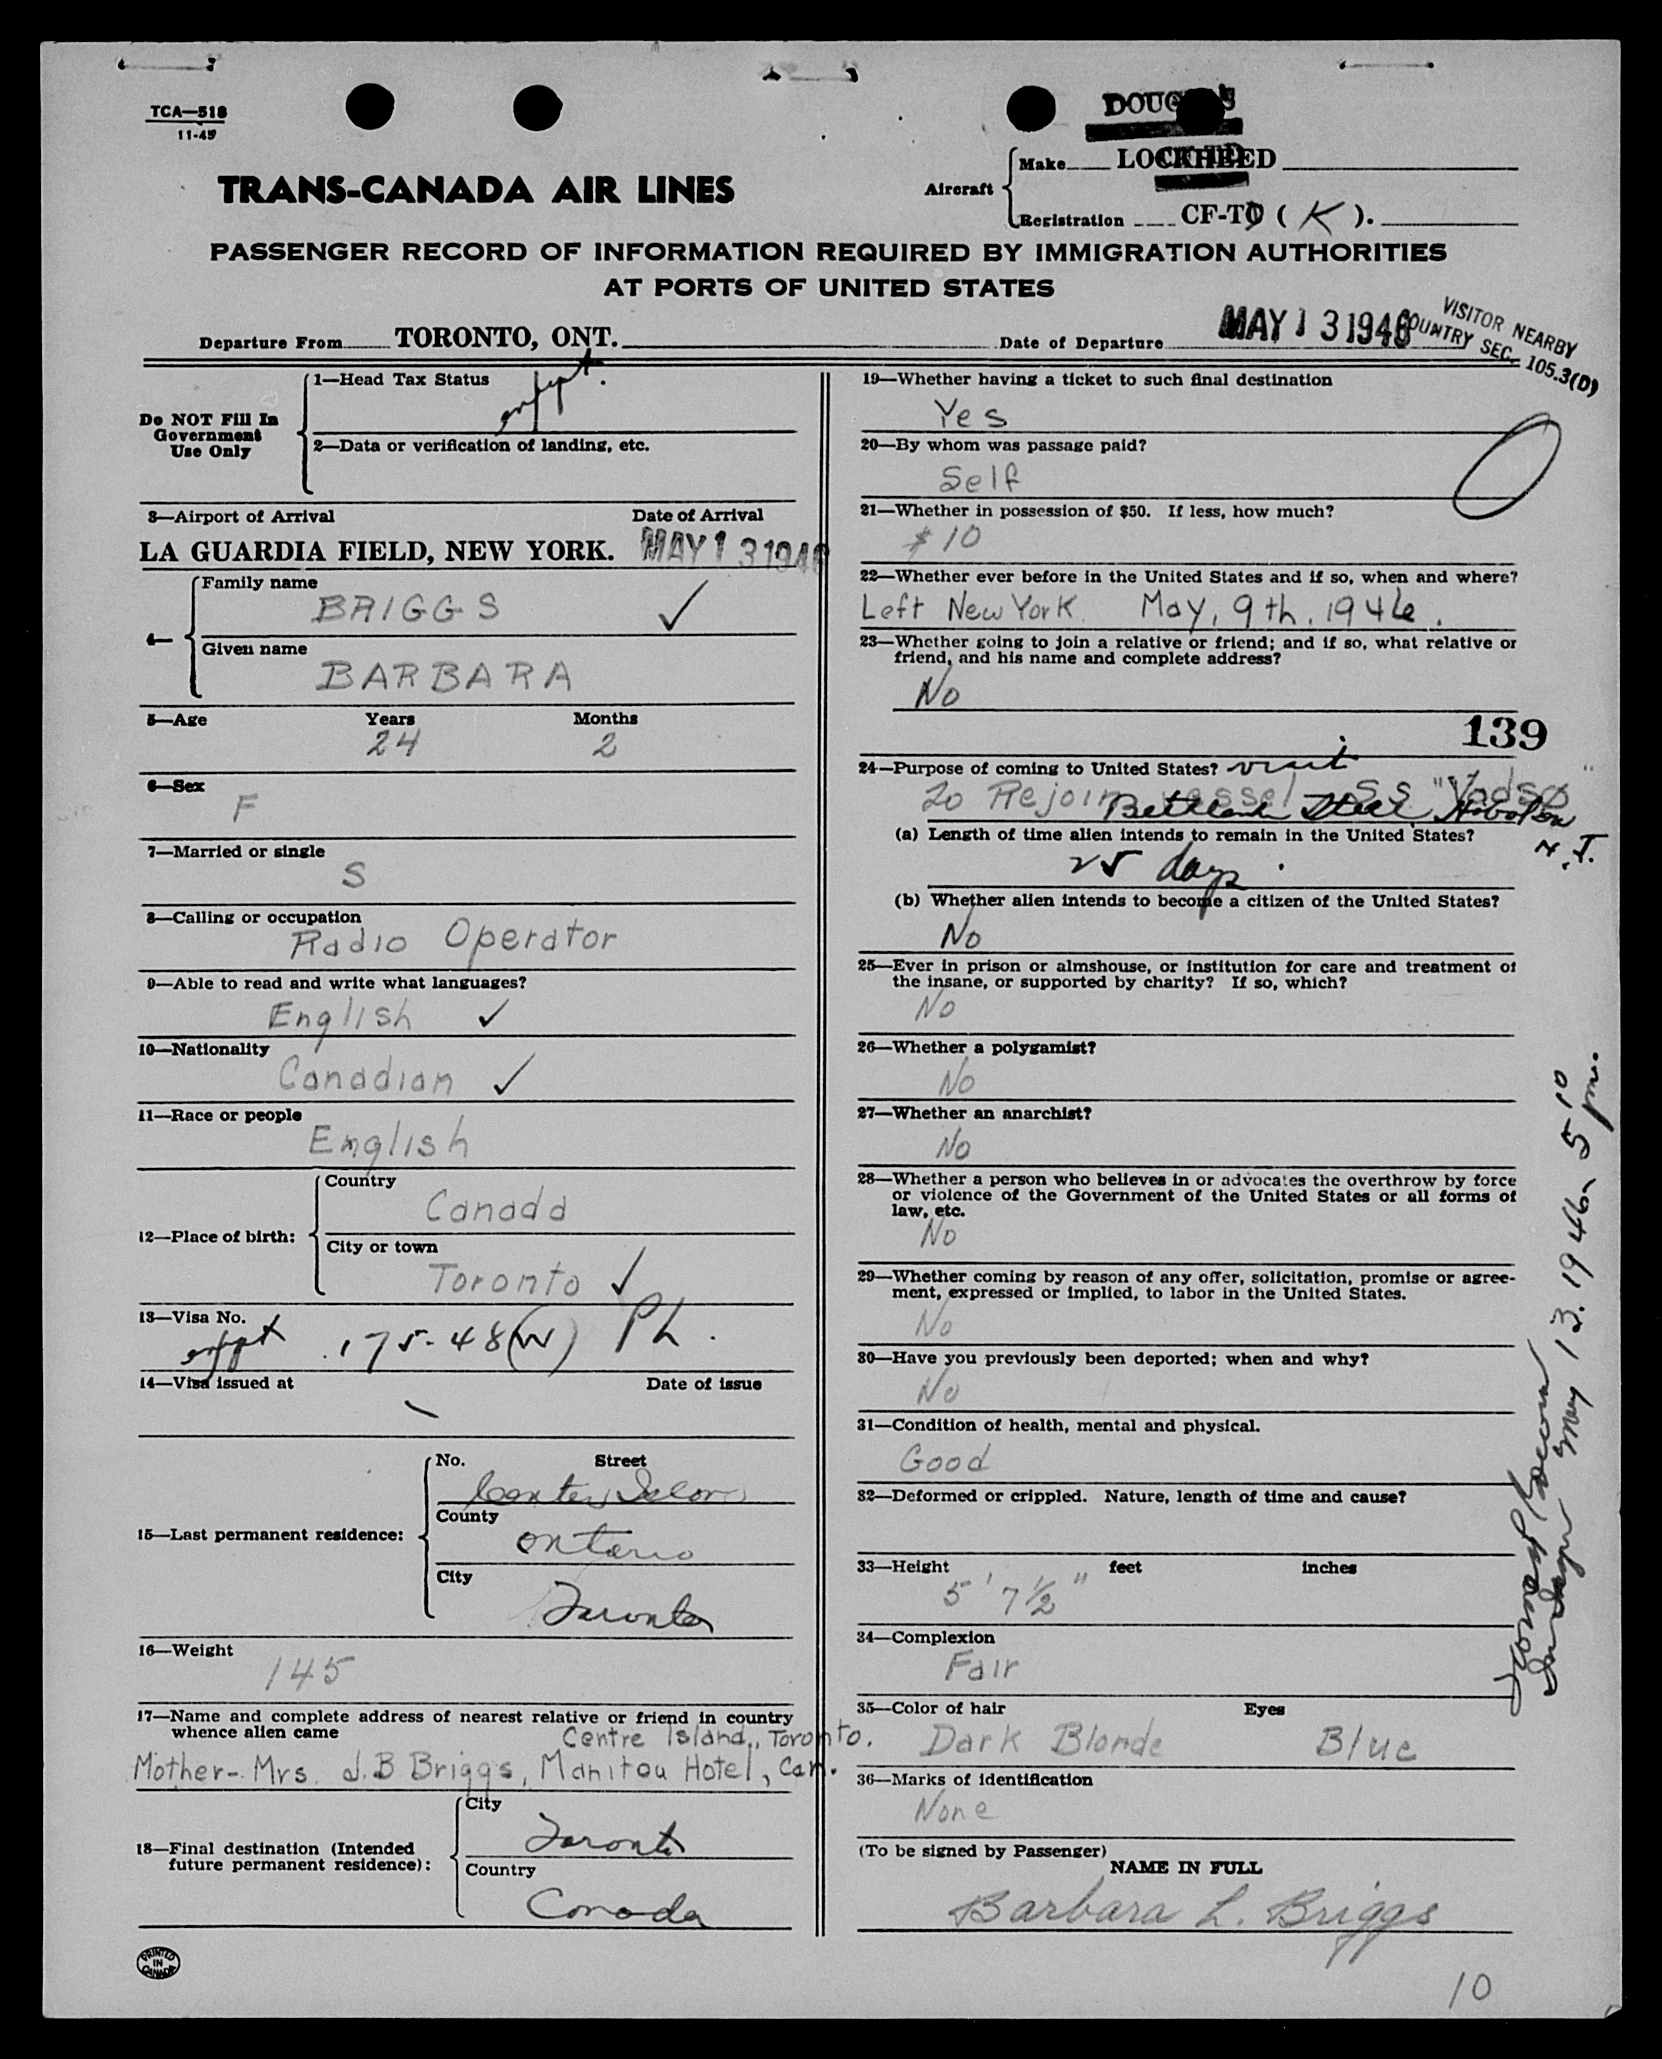 TCA—518
11-45
TRANS-CANADA AIR LINES
DOUGLAS
Aircraft
Make LOCKHEED
Registration CF-T ( K ).
PASSENGER RECORD OF INFORMATION REQUIRED BY IMMIGRATION AUTHORITIES
AT PORTS OF UNITED STATES
Departure From TORONTO, ONT. Date of Departure MAY 13 1946
VISITOR NEARBY
COUNTRY SEC. 105.3(D)
Do NOT Fill In
Government
Use Only
1—Head Tax Status
2—Data or verification of landing, etc.
3—Airport of Arrival Date of Arrival
LA GUARDIA FIELD, NEW YORK. MAY 13 1946
4—
Family name
BRIGGS ✓
Given name
BARBARA
5—Age Years Months
24 2
6—Sex
F
7—Married or single
S
8—Calling or occupation
Radio Operator
9—Able to read and write what languages?
English ✓
10—Nationality
Canadian ✓
11—Race or people
English
12—Place of birth:
Country
Canada
City or town
Toronto ✓
13—Visa No.
175-48(W) Ph.
14—Visa issued at Date of issue
15—Last permanent residence:
No. Street
Center
County
Ontario
City
Toronto
16—Weight
145
17—Name and complete address of nearest relative or friend in country
whence alien came
Centre Island, Toronto.
Mother- Mrs. J.B Briggs, Manitou Hotel, Can.
18—Final destination (Intended
future permanent residence):
City
Toronto
Country
Canada
PRINTED
IN
CANADA
19—Whether having a ticket to such final destination
Yes
20—By whom was passage paid?
Self
21—Whether in possession of $50. If less, how much?
$10
22—Whether ever before in the United States and if so, when and where?
Left New York. May, 9th, 1946.
23—Whether going to join a relative or friend; and if so, what relative or
friend, and his name and complete address?
No
139
24—Purpose of coming to United States? visit
To Rejoin vessel SS "Vadsø"
Bethlehem Steel Hoboken
N.J.
(a) Length of time alien intends to remain in the United States?
25 days.
(b) Whether alien intends to become a citizen of the United States?
No
25—Ever in prison or almshouse, or institution for care and treatment of
the insane, or supported by charity? If so, which?
No
26—Whether a polygamist?
No
27—Whether an anarchist?
No
28—Whether a person who believes in or advocates the overthrow by force
or violence of the Government of the United States or all forms of
law, etc.
No
29—Whether coming by reason of any offer, solicitation, promise or agree-
ment, expressed or implied, to labor in the United States.
No
30—Have you previously been deported; when and why?
No
31—Condition of health, mental and physical.
Good
32—Deformed or crippled. Nature, length of time and cause?
33—Height feet inches
5' 7½"
34—Complexion
Fair
35—Color of hair Eyes
Dark Blonde Blue
36—Marks of identification
None
(To be signed by Passenger)
NAME IN FULL
Barbara L. Briggs
10
May 13. 1946 5 10 pm.